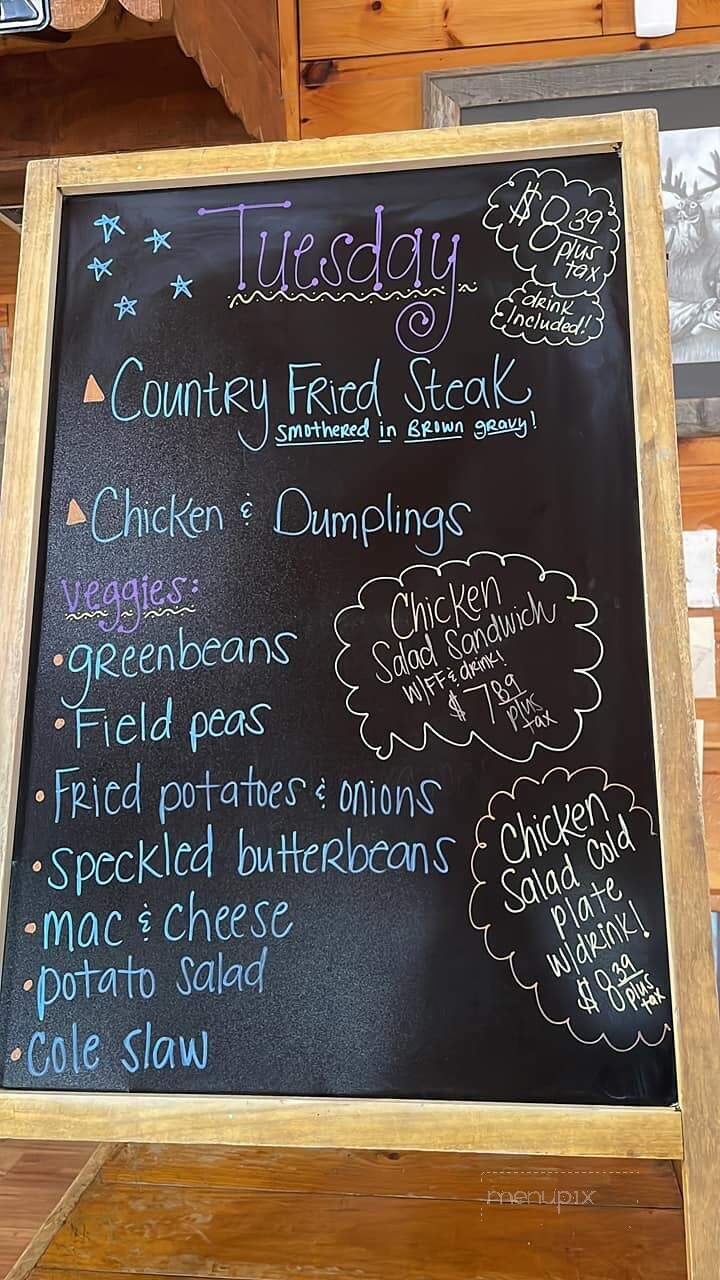 Tuesday
$8.39
plus
tax
drink
included!
Country Fried Steak
Smothered in Brown gravy!
Chicken & Dumplings
veggies:
greenbeans
Field peas
Fried potatoes & onions
speckled butterbeans
mac & cheese
potato salad
cole slaw
Chicken
Salad Sandwich
W/FF & drink!
$7.89
plus
tax
Chicken
Salad Cold
plate
w/drink!
$8.39
plus
tax
menupix